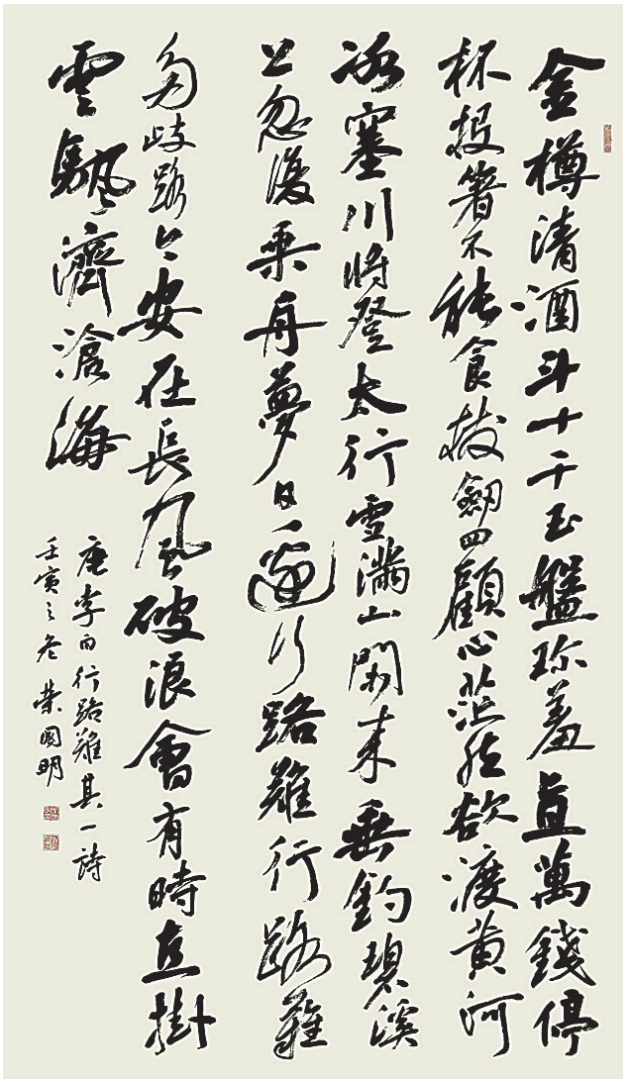 金樽清酒斗十千玉盤珍羞直萬錢停
杯投箸不能食拔劍四顧心茫然欲渡黃河
冰塞川將登太行雪滿山閑來垂釣碧溪
上忽復乘舟夢日邊行路難行路難
多歧路今安在長風破浪會有時直掛
雲颿濟滄海
唐李白行路難其一詩
壬寅之冬榮國明